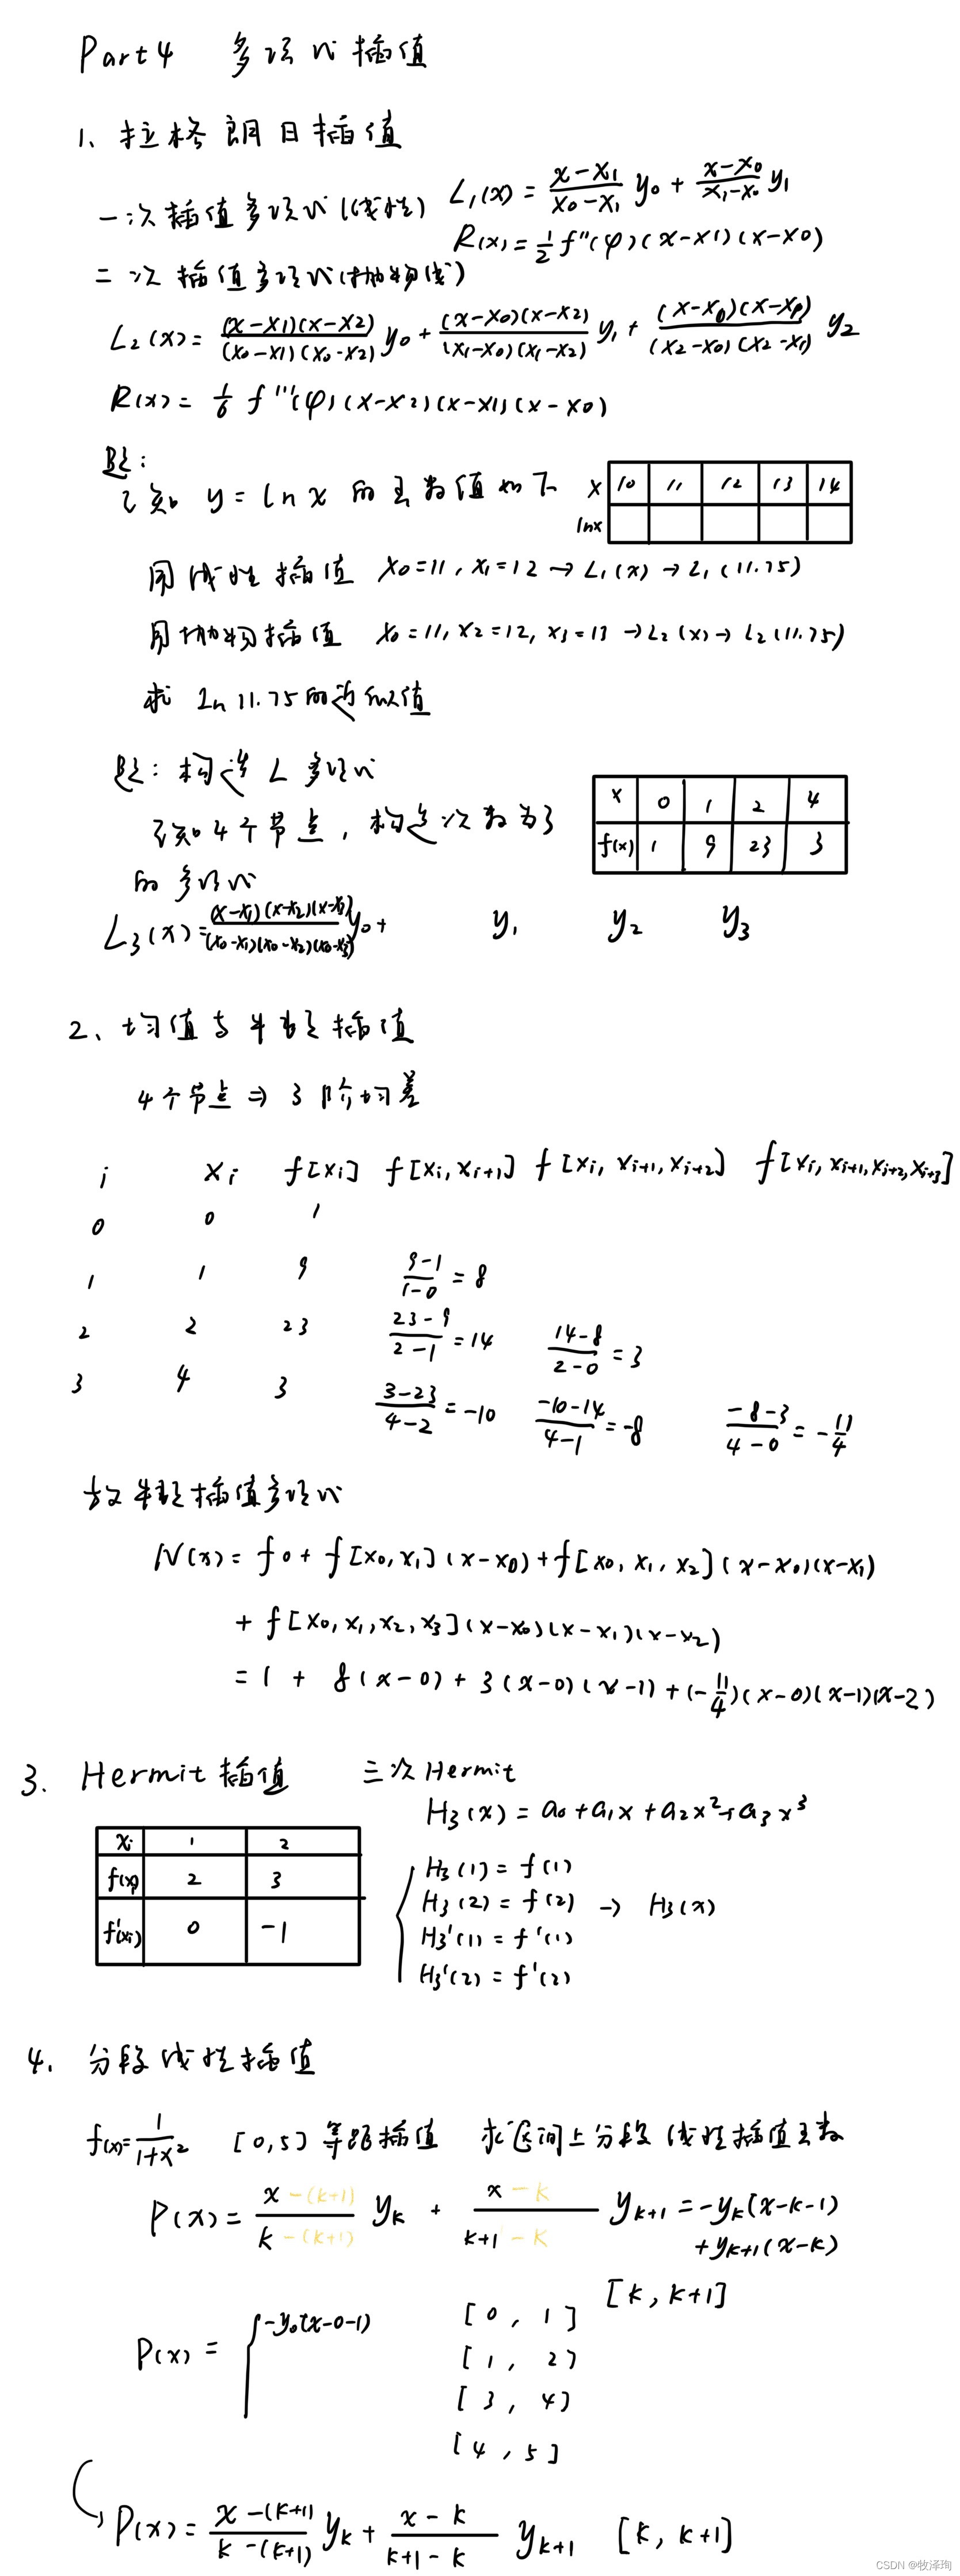 Part4 多项式插值
1、拉格朗日插值
一次插值多项式(线性) L₁(x) = (x-x₁)/(x₀-x₁) y₀ + (x-x₀)/(x₁-x₀) y₁
R(x) = 1/2 f''(φ)(x-x1)(x-x0)
二次插值多项式(抛物线)
L₂(x) = (x-x1)(x-x2)/(x₀-x1)(x₀-x2) y₀ + (x-x0)(x-x2)/(x₁-x0)(x₁-x2) y₁ + (x-x₀)(x-x₁)/(x2-x0)(x2-x₁) y₂
R(x) = 1/6 f'''(φ)(x-x2)(x-x1)(x-x0)
题:
已知 y = ln x 的函数值如下
x 10 11 12 13 14
lnx
用线性插值 x₀=11, x₁=12 → L₁(x) → L₁(11.75)
用抛物插值 x₀=11, x2=12, x3=13 → L₂(x) → L₂(11.75)
求 ln 11.75的近似值
题: 构造 L 多项式
x 0 1 2 4
f(x) 1 9 23 3
已知4个节点, 构造次数为3
的多项式
L₃(x) = (x-x₁)(x-x₂)(x-x₃)/(x₀-x₁)(x₀-x₂)(x₀-x₃) y₀ + y₁ y₂ y₃
2、均值与牛顿插值
4个节点 ⇒ 3阶均差
i xᵢ f[xᵢ] f[xᵢ, xᵢ₊₁] f[xᵢ, xᵢ₊₁, xᵢ₊₂] f[xᵢ, xᵢ₊₁, xᵢ₊₂, xᵢ₊₃]
0 0 1
1 1 9 (9-1)/(1-0) = 8
2 2 23 (23-9)/(2-1) = 14 (14-8)/(2-0) = 3
3 4 3 (3-23)/(4-2) = -10 (-10-14)/(4-1) = -8 (-8-3)/(4-0) = -11/4
故牛顿插值多项式
N(x) = f0 + f[x₀, x₁](x-x₀) + f[x₀, x₁, x₂](x-x₀)(x-x₁)
+ f[x₀, x₁, x₂, x₃](x-x₀)(x-x₁)(x-x₂)
= 1 + 8(x-0) + 3(x-0)(x-1) + (-11/4)(x-0)(x-1)(x-2)
3. Hermit插值 三次Hermit
H₃(x) = a₀ + a₁x + a₂x² + a₃x³
xᵢ 1 2
f(xᵢ) 2 3
f'(xᵢ) 0 -1
H₃(1) = f(1)
H₃(2) = f(2) → H₃(x)
H₃'(1) = f'(1)
H₃'(2) = f'(2)
4. 分段线性插值
f(x) = 1/(1+x²) [0,5] 等距插值 求区间上分段线性插值函数
P(x) = (x-(k+1))/(k-(k+1)) yₖ + (x-k)/(k+1-k) yₖ₊₁ = -yₖ(x-k-1)
+ yₖ₊₁(x-k)
[k, k+1]
P(x) = { -y₀(x-0-1) [0, 1]
[1, 2]
[3, 4]
[4, 5]
P(x) = (x-(k+1))/(k-(k+1)) yₖ + (x-k)/(k+1-k) yₖ₊₁ [k, k+1]
CSDN @牧泽珣